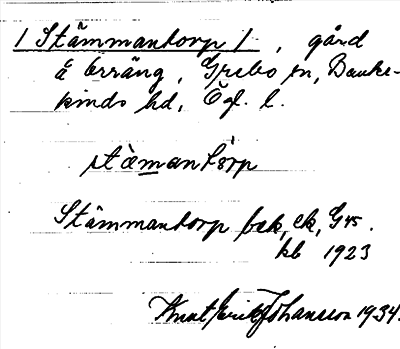 / Stämmantorp /, gård
å Erräng, Grebo sn, Banke-
kinds hd, Ög. l.
stämantòrp
Stämmantorp bek, ek, G45.
kb 1923
Knut Erik Johansson 1934.